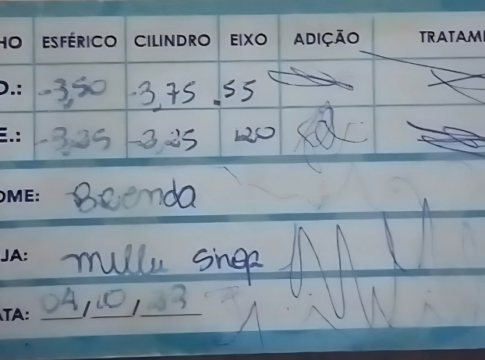 HO ESFÉRICO CILINDRO EIXO ADIÇÃO TRATAM
D.: -3,50 -3,75 .55
E.: -3,25 -3,25 120
OME: Brenda
JA:
ATA: 04,10,23